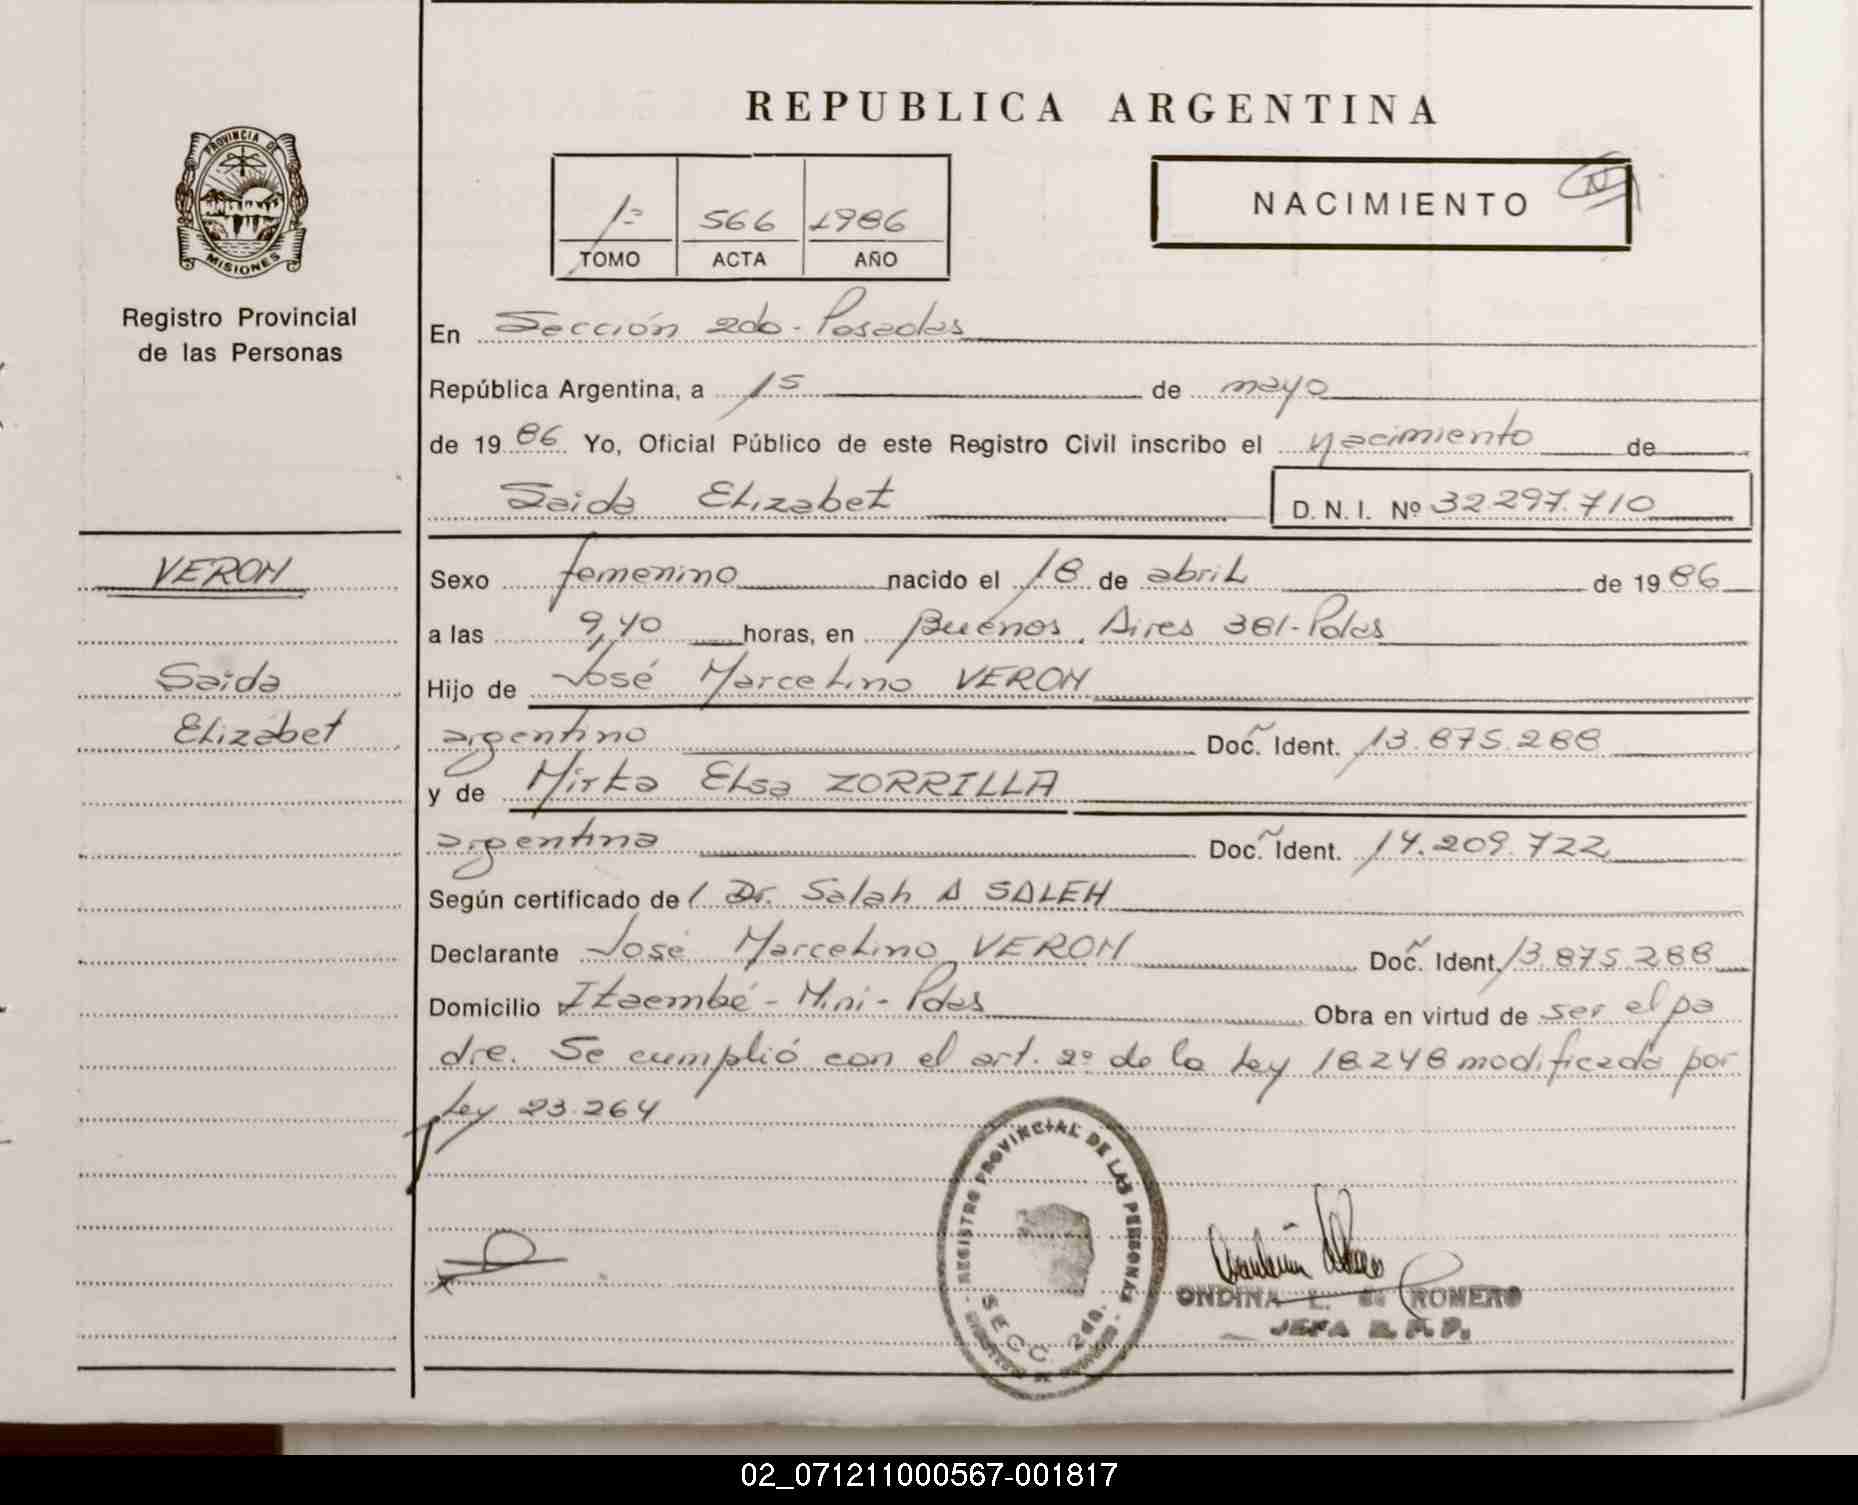 REPUBLICA ARGENTINA
PROVINCIA DE
MISIONES
Registro Provincial
de las Personas
1º 566 1986
TOMO ACTA AÑO
NACIMIENTO
En Sección 2do - Posadas
República Argentina, a 15 de mayo
de 1986 Yo, Oficial Público de este Registro Civil inscribo el nacimiento de
Saida Elizabet D. N. I. Nº 32.297.710
VERON
Sexo femenino nacido el 18 de abril de 1986
a las 9,40 horas, en Buenos Aires 381-Pdas
Saida
Hijo de José Marcelino VERON
Elizabet
argentino Doc. Ident. 13.875.288
y de Mirta Elsa ZORRILLA
argentina Doc. Ident. 14.209.722
Según certificado de Dr. Salah A SALEH
Declarante José Marcelino VERON Doc. Ident. 13.875.288
Domicilio Itaembé - Mini - Pdas Obra en virtud de ser el pa
dre. Se cumplió con el art. 2º de la Ley 18.248 modificada por
Ley 23.264
REGISTRO PROVINCIAL DE LAS PERSONAS
SECC. 2da.
ONDINA L. de ROMERO
JEFA R. P. P.
02_071211000567-001817